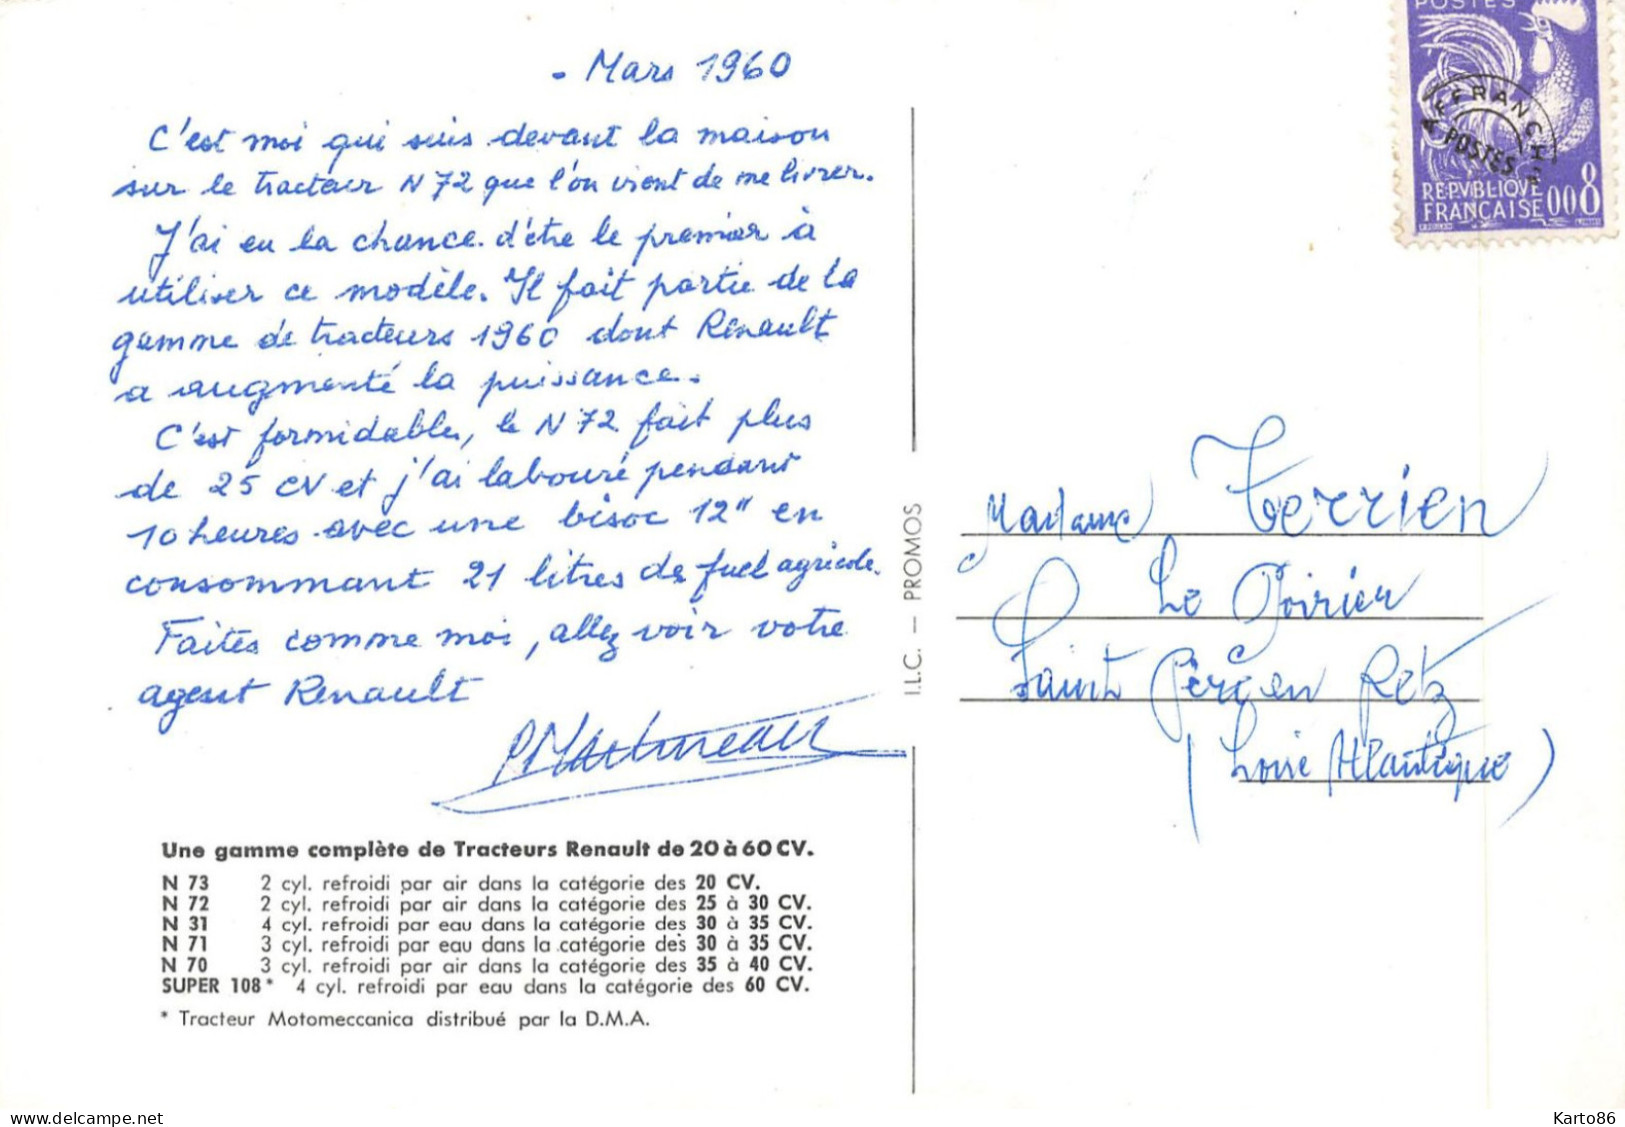 - Mars 1960
C'est moi qui suis devant la maison
sur le tracteur N 72 que l'on vient de me livrer.
J'ai eu la chance d'être le premier à
utiliser ce modèle. Il fait partie de la
gamme de tracteurs 1960 dont Renault
a augmenté la puissance.
C'est formidable, le N 72 fait plus
de 25 CV et j'ai labouré pendant
10 heures avec une bisoc 12" en
consommant 21 litres de fuel agricole.
Faites comme moi, allez voir votre
agent Renault
P Martineau
Une gamme complète de Tracteurs Renault de 20 à 60 CV.
N 73 2 cyl. refroidi par air dans la catégorie des 20 CV.
N 72 2 cyl. refroidi par air dans la catégorie des 25 à 30 CV.
N 31 4 cyl. refroidi par eau dans la catégorie des 30 à 35 CV.
N 71 3 cyl. refroidi par eau dans la catégorie des 30 à 35 CV.
N 70 3 cyl. refroidi par air dans la catégorie des 35 à 40 CV.
SUPER 108* 4 cyl. refroidi par eau dans la catégorie des 60 CV.
* Tracteur Motomeccanica distribué par la D.M.A.
I.L.C. — PROMOS
POSTES
AFFRANCHts
POSTES
REPVBLIQVE
FRANÇAISE 008
Madame Terrien
Le Poirier
Saint Père en Retz
(Loire Atlantique)
www.delcampe.net
Karto86